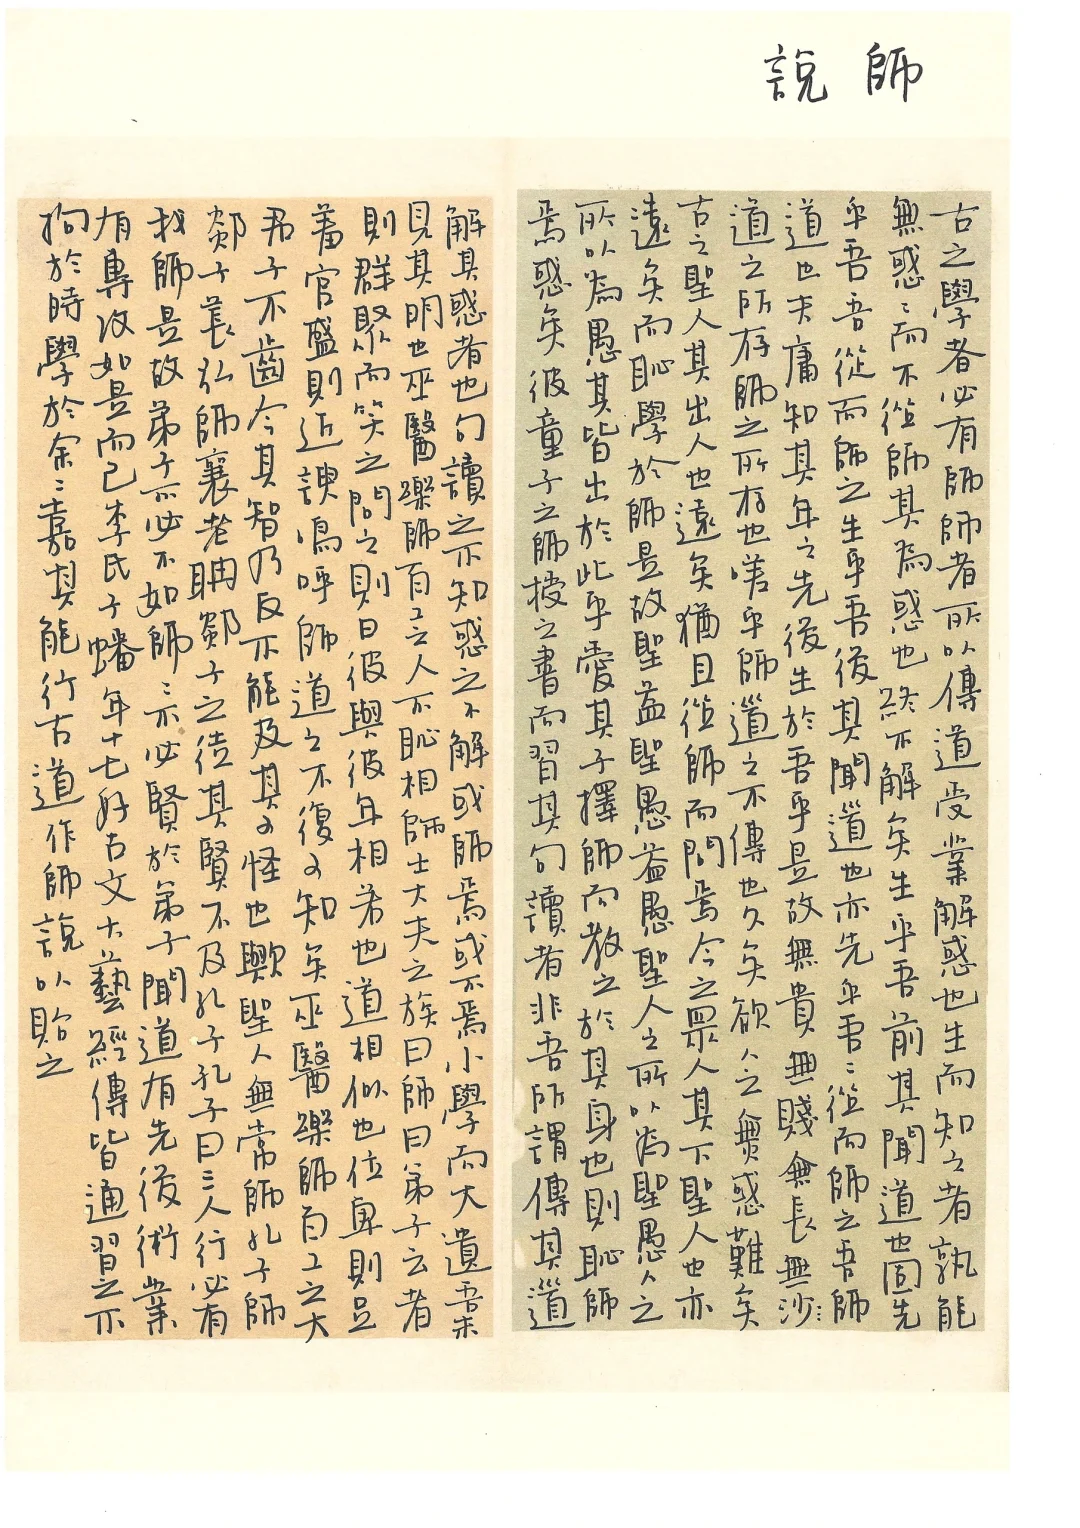 師說
古之學者必有師師者所以傳道受業解惑也生而知之者孰能
無惑〻而不從師其為惑也終不解矣生乎吾前其聞道也固先
乎吾吾從而師之生乎吾後其聞道也亦先乎吾〻從而師之吾師
道也夫庸知其年之先後生於吾乎是故無貴無賤無長無少
道之所存師之所存也嗟乎師道之不傳也久矣欲人之無惑難矣
古之聖人其出人也遠矣猶且從師而問焉今之眾人其下聖人也亦
遠矣而恥學於師是故聖益聖愚益愚聖人之所以為聖愚人之
所以為愚其皆出於此乎愛其子擇師而教之於其身也則恥師
焉惑矣彼童子之師授之書而習其句讀者非吾所謂傳其道
解其惑者也句讀之不知惑之不解或師焉或不焉小學而大遺吾未
見其明也巫醫樂師百工之人不恥相師士大夫之族曰師曰弟子云者
則群聚而笑之問之則曰彼與彼年相若也道相似也位卑則足
羞官盛則近諛嗚呼師道之不復可知矣巫醫樂師百工之人
君子不齒今其智乃反不能及其可怪也歟聖人無常師孔子師
郯子萇弘師襄老聃郯子之徒其賢不及孔子孔子曰三人行必有
我師是故弟子不必不如師〻不必賢於弟子聞道有先後術業
有專攻如是而已李氏子蟠年十七好古文六藝經傳皆通習之不
拘於時學於余〻嘉其能行古道作師說以貽之